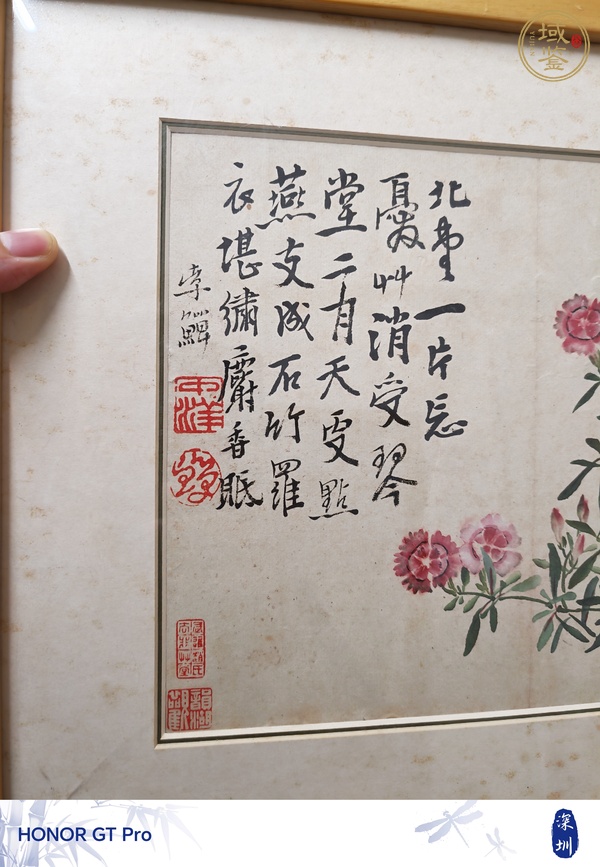 域鑒
北堂一片忘
憂艸消受琴
堂二月天更點
燕支成石竹羅
衣堪繡麝香眠
李鱓
中洋
HONOR GT Pro
深圳